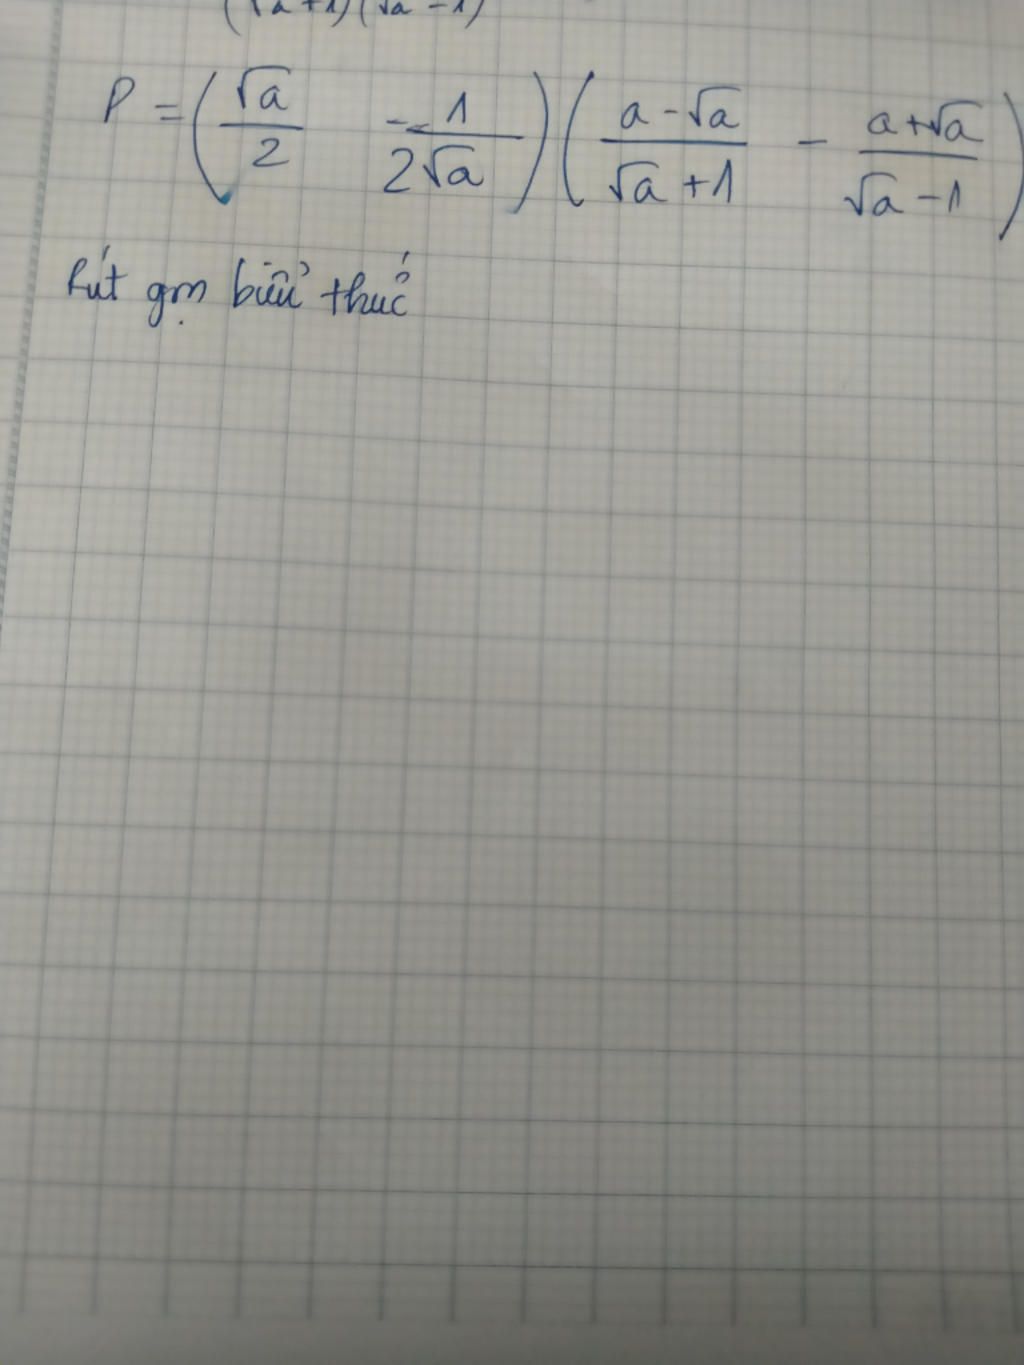 (√a + 1)(√a - 1)
P = (√a/2 - 1/(2√a)) ((a - √a)/(√a + 1) - (a + √a)/(√a - 1))
Rút gọn biểu thức